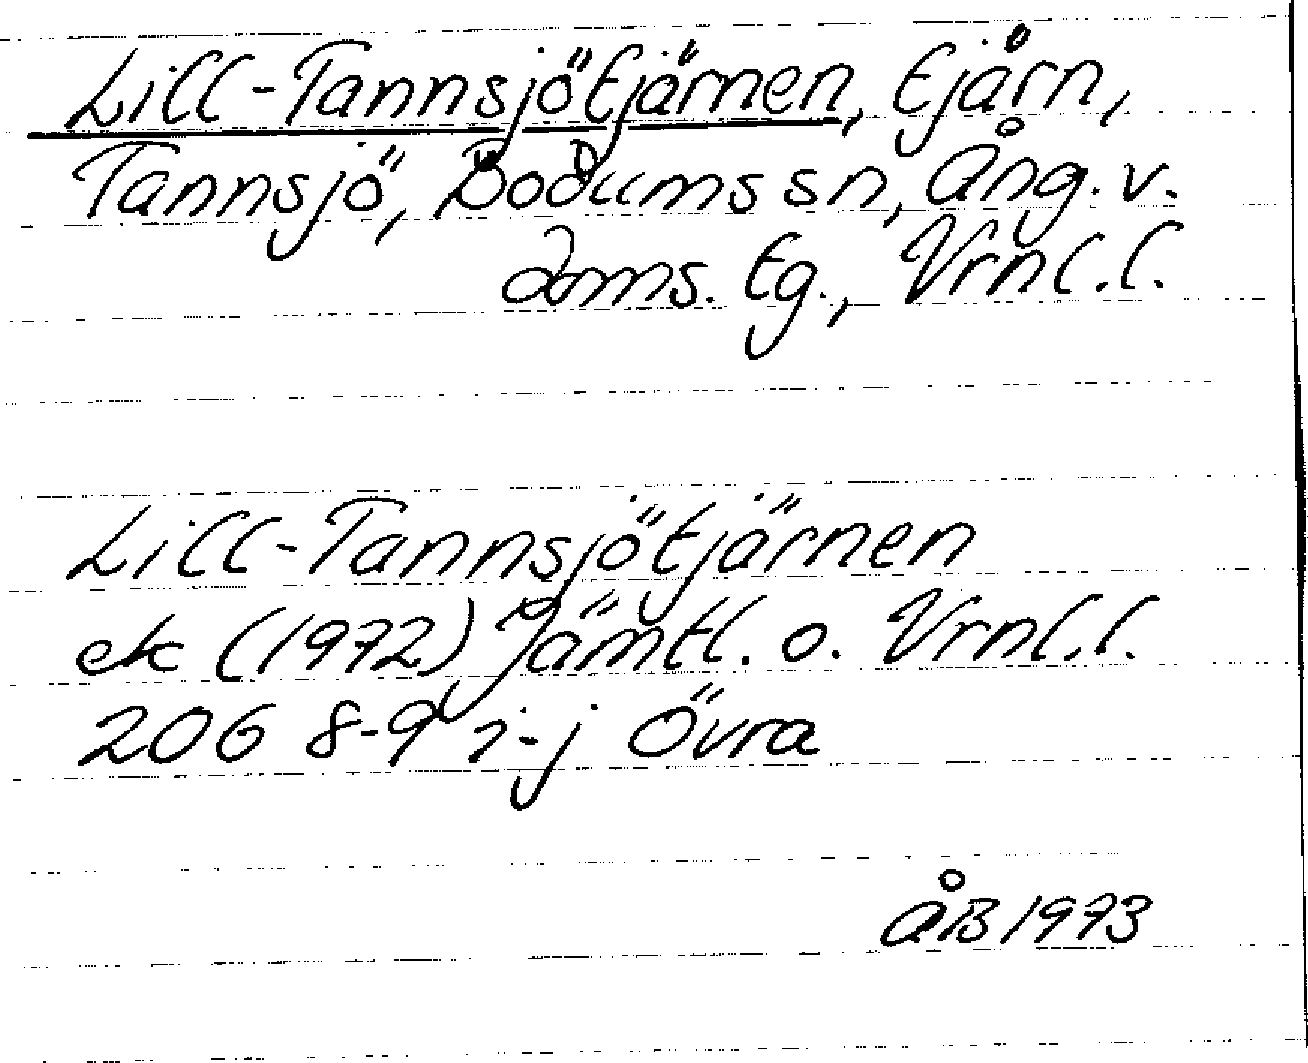 Lill-Tannsjötjärnen, tjärn,
Tannsjö, Bodums sn, Ång. v.
doms. tg., Vrnl.l.
Lill-Tannsjötjärnen
ek (1972) Jämtl. o. Vrnl.l.
206 8-9 i-j Övra
ÅB 1973